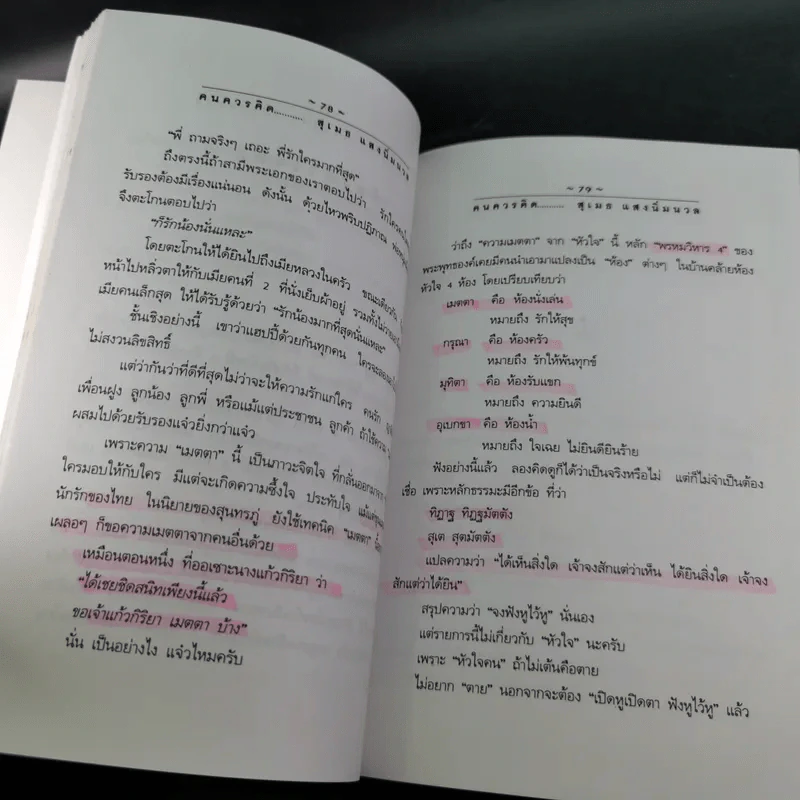 ~ 78 ~
คนควรคิด........... สุเมธ แสงนิ่มนวล
"พี่ ถามจริงๆ เถอะ พี่รักใครมากที่สุด"
ถึงตรงนี้ถ้าสามีพระเอกของเราตอบไปว่า
รับรองต้องมีเรื่องแน่นอน ดังนั้น ด้วยไหวพริบปฏิภาณ
จึงตะโกนตอบไปว่า
"ก็รักน้องนั่นแหละ"
โดยตะโกนให้ได้ยินไปถึงเมียหลวงในครัว ขณะเดียวกัน
หน้าไปหลิ่วตาให้กับเมียคนที่ 2 ที่นั่งเย็บผ้าอยู่
เมียคนเล็กสุด ให้ได้รับรู้ด้วยว่า "รักน้องมากที่สุดนั่นแหละ"
ชั้นเชิงอย่างนี้ เขาว่าแฮปปี้ด้วยกันทุกคน
ไม่สงวนลิขสิทธิ์
แต่ว่ากันว่าที่ดีที่สุดไม่ว่าจะให้ความรักแก่ใคร คนรัก
เพื่อนฝูง ลูกน้อง ลูกพี่ หรือแม้แต่ประชาชน ลูกค้า
ผสมไปด้วยรับรองแจ๋วยิ่งกว่าแจ๋ว
เพราะความ "เมตตา" นี้ เป็นภาวะจิตใจ
ใครมอบให้กับใคร มีแต่จะเกิดความซึ้งใจ ประทับใจ
นักรักของไทย ในนิยายของสุนทรภู่ ยังใช้เทคนิค "เมตตา"
เผลอๆ ก็ขอความเมตตาจากคนอื่นด้วย
เหมือนตอนหนึ่ง ที่ออเซาะนางแก้วกิริยา ว่า
"ได้เชยชิดสนิทเพียงนี้แล้ว
ขอเจ้าแก้วกิริยา เมตตา บ้าง"
นั่น เป็นอย่างไง แจ๋วไหมครับ
~ 79 ~
คนควรคิด........... สุเมธ แสงนิ่มนวล
ว่าถึง "ความเมตตา" จาก "หัวใจ" นี้ หลัก "พรหมวิหาร 4" ของ
พระพุทธองค์เคยมีคนนำเอามาแปลงเป็น "ห้อง" ต่างๆ ในบ้านคล้ายห้อง
หัวใจ 4 ห้อง โดยเปรียบเทียบว่า
เมตตา คือ ห้องนั่งเล่น
หมายถึง รักให้สุข
กรุณา คือ ห้องครัว
หมายถึง รักให้พ้นทุกข์
มุทิตา คือ ห้องรับแขก
หมายถึง ความยินดี
อุเบกขา คือ ห้องน้ำ
หมายถึง ใจเฉย ไม่ยินดียินร้าย
ฟังอย่างนี้แล้ว ลองคิดดูก็ได้ว่าเป็นจริงหรือไม่ แต่ก็ไม่จำเป็นต้อง
เชื่อ เพราะหลักธรรมะมีอีกข้อ ที่ว่า
ทิฏฐ ทิฏฐมัตตัง
สุเต สุตมัตตัง
แปลความว่า "ได้เห็นสิ่งใด เจ้าจงสักแต่ว่าเห็น ได้ยินสิ่งใด เจ้าจง
สักแต่ว่าได้ยิน"
สรุปความว่า "จงฟังหูไว้หู" นั่นเอง
แต่รายการนี้ไม่เกี่ยวกับ "หัวใจ" นะครับ
เพราะ "หัวใจคน" ถ้าไม่เต้นคือตาย
ไม่อยาก "ตาย" นอกจากจะต้อง "เปิดหูเปิดตา ฟังหูไว้หู" แล้ว